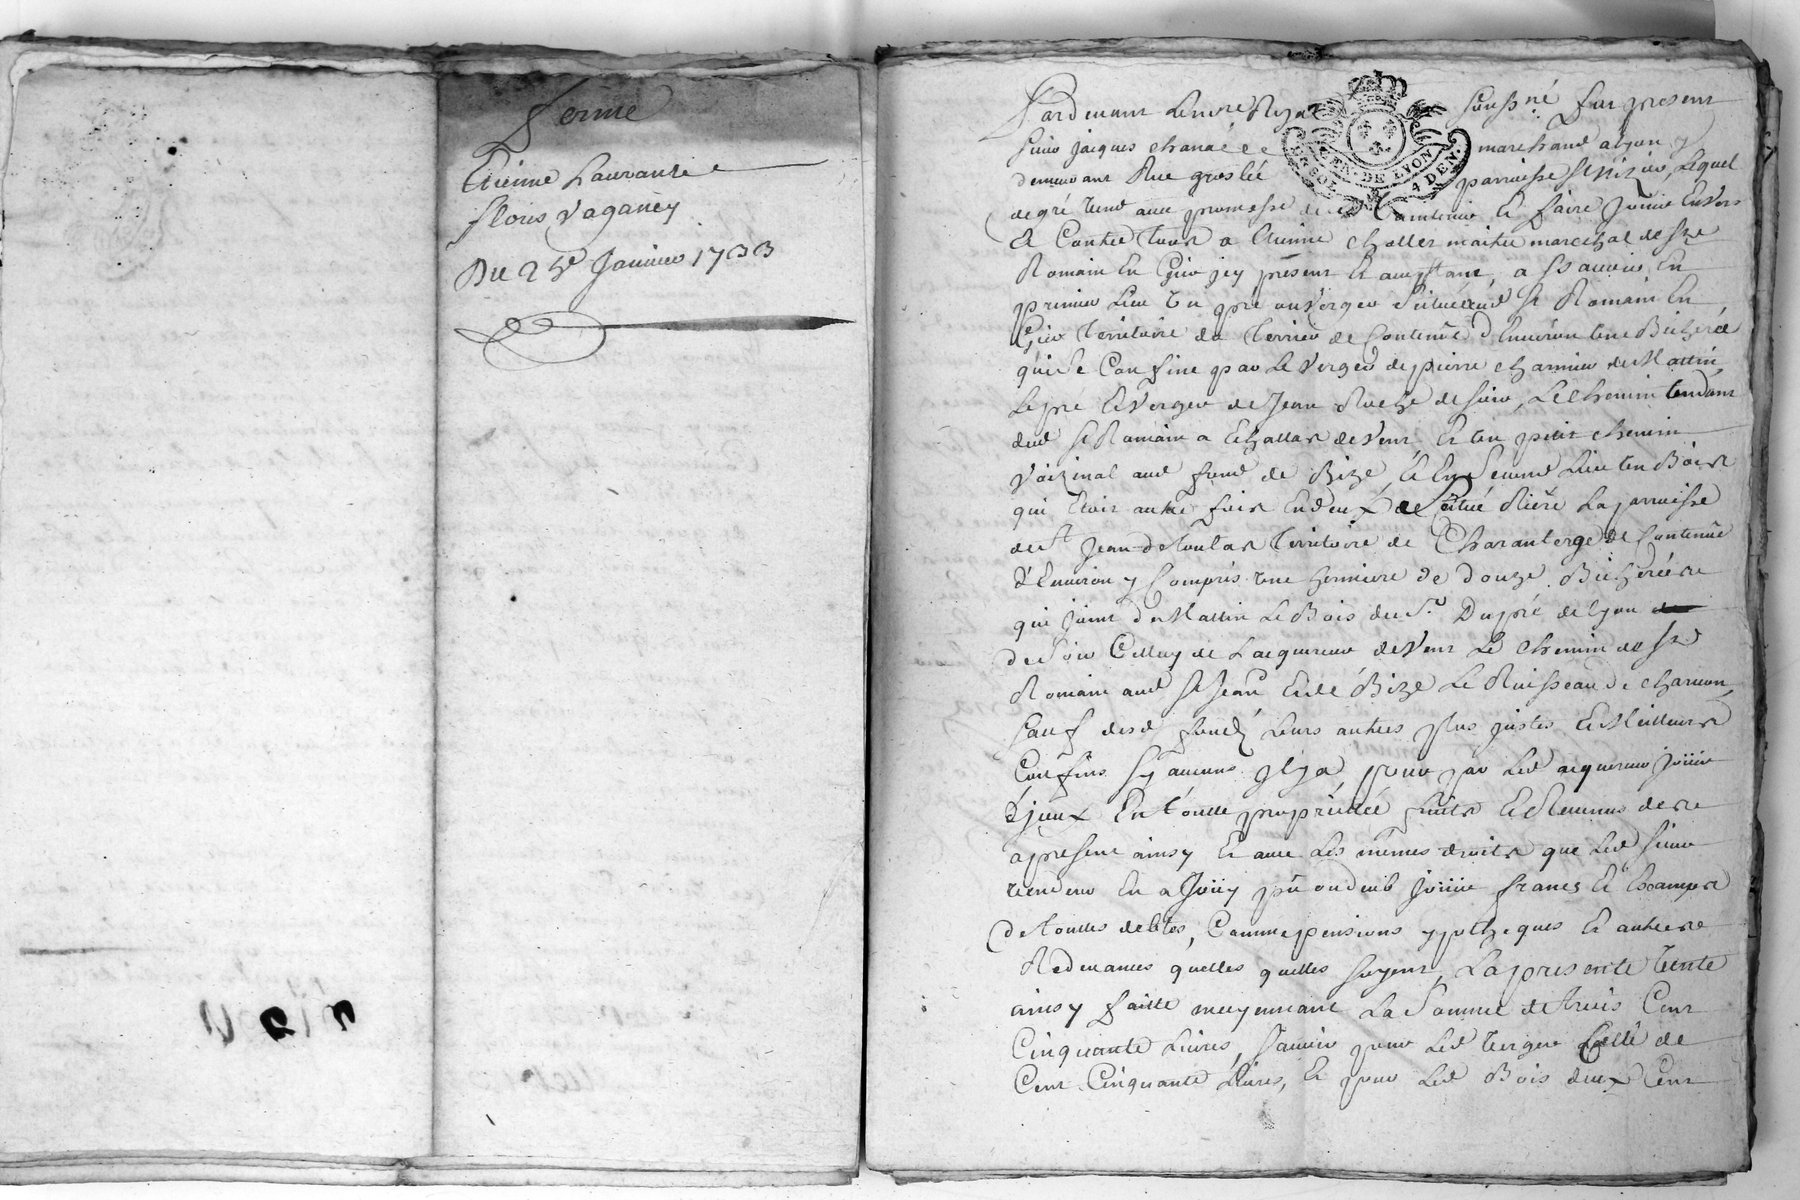 ferme
Etienne Laurande
floris Vaganey
Du 25e Janvier 1733
Pardevant Le nore Royal sousné fut present
sieur jacques marchand a lyon y
demeurant Rue groslée parroisse st nizier, Lequel
de gré vend avec promesse de maintenir et faire jouir Envers
Et Contre tous a Etienne challes maitre marechal de st
Romain En Gier jcy present Et acceptant, a scavoir En
premier Lieu un pré ou verger scitué aud st Romain En
Gier territoire du terrier de Contenüe d'Environ une Bicherée
qui se Confine par Le verger de pierre charmier de Matin,
Le pré Et verger de Jean Roche de soir, Le chemin tendant
dud st Romain a Echallas de vent Et un petit chemin
voizinal aud fond de Bize, Et En second Lieu un Bois
qui Etoit autre fois En deux scitué Riere La parroisse
de st Jean de toulas territoire de Charantorge de Contenüe
d'Environ y Compris une hermiere de douze Bicherées
qui joint de Matin Le Bois du sr Dupré de lyon
de soir Celluy de L'acquereur de vent Le chemin de st
Romain aud st Jean Et de Bize Le Ruisseau de
sauf desd fonds Leurs autres plus justes Et Meilleurs
Confins sy aucuns jl y a, pour par Led acquereur joüir
d'jceux En toutte proprietée fruits Et Revenus des
a present ainsy Et avec Les mêmes droits que Led sieur
vendeur En a Joüy pû ou deub joüir francs Et Exempts
de touttes debtes, Comme pensions ypotheques Et autres
Redevances quelles quelles soyent, La presente vente
ainsy faitte moyennant La somme de trois Cent
Cinquante Livres, scavoir pour Led verger Celle de
Cent Cinquante Livres, Et pour Led Bois deux Cent
GEN. DE LYON
4 DEN.